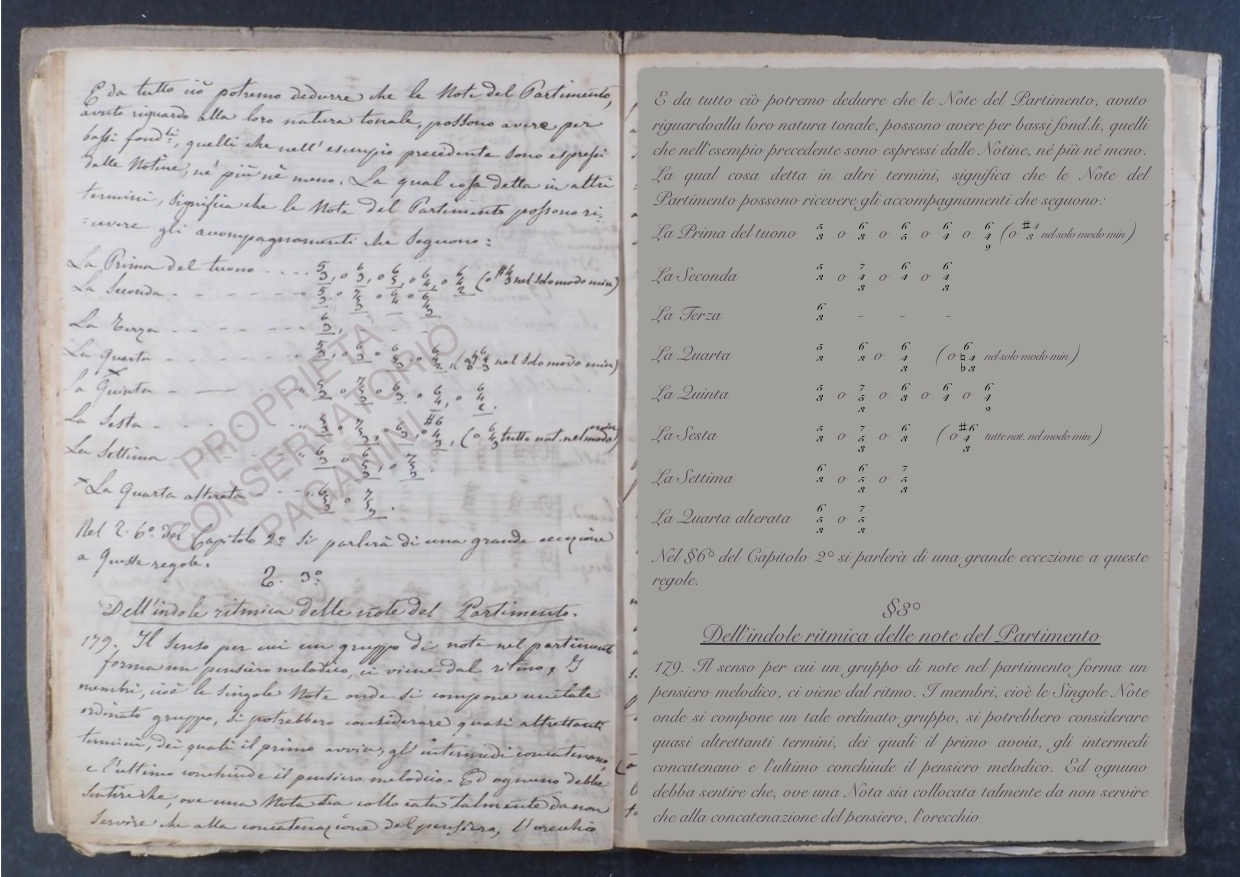 E da tutto ciò potremo dedurre che le Note del Partimento,
avuto riguardo alla loro natura tonale, possono avere per
bassi fond.li, quelli che nell'esempio precedente sono espressi
dalle Notine, né più né meno. La qual cosa detta in altri
termini, significa che le Note del Partimento possono ri-
=cevere gli accompagnamenti che seguono:
La Prima del tuono .... 5/3, o 6/3, o 6/5, o 6/4, o 6/4/2 (o #4/3 nel solo modo min)
La Seconda - - - - 5/3 o 7/4/3 o 6/4 o 6/4/3
La Terza - - - - 6/3, - - -
La Quarta - - - 5/3, o 6/3 o (nel solo modo min)
La Quinta
La Sesta (o tutte nat. nel modo min
La Settima
La Quarta alterata
Nel §. 6° del Capitolo 2° si parlerà di una grande eccezione
a queste regole.
§. 3°
Dell'indole ritmica delle note del Partimento.
179. Il senso per cui un gruppo di note nel partimento
forma un pensiero melodico, ci viene dal ritmo, I
membri, cioè le singole Note onde si compone un tale
ordinato gruppo, si potrebbero considerare quasi altrettanti
termini, dei quali il primo avvia, gl'intermedi concatenano,
e l'ultimo conchiude il pensiero melodico. Ed ognuno debba
sentire che, ove una Nota sia collocata talmente da non
servire che alla concatenazione del pensiero, l'orecchio
PROPRIETA'
CONSERVATORIO
PAGANINI
E da tutto ciò potremo dedurre che le Note del Partimento, avuto
riguardoalla loro natura tonale, possono avere per bassi fond.li, quelli
che nell'esempio precedente sono espressi dalle Notine, né più né meno.
La qual cosa detta in altri termini, significa che le Note del
Partimento possono ricevere gli accompagnamenti che seguono:
La Prima del tuono 5/3 o 6/3 o 6/5 o 6/4 o 6/4/2 (o #4/3 nel solo modo min)
La Seconda 5/3 o 7/4/3 o 6/4 o 6/4/3
La Terza 6/3 - - -
La Quarta 5/3 6/3 o 6/4/3 (o 6/♮4/♭3 nel solo modo min)
La Quinta 5/3 o 7/5/3 o 6/3 o 6/4 o 6/4/2
La Sesta 5/3 o 7/5/3 o 6/3 (o #6/4/3 tutte nat. nel modo min)
La Settima 6/3 o 6/5/3 o 7/5/3
La Quarta alterata 6/5/3 o 7/5/3
Nel §6° del Capitolo 2° si parlerà di una grande eccezione a queste
regole.
§3°
Dell'indole ritmica delle note del Partimento
179. Il senso per cui un gruppo di note nel partimento forma un
pensiero melodico, ci viene dal ritmo. I membri, cioè le Singole Note
onde si compone un tale ordinato gruppo, si potrebbero considerare
quasi altrettanti termini, dei quali il primo avvia, gli intermedi
concatenano e l'ultimo conchiude il pensiero melodico. Ed ognuno
debba sentire che, ove una Nota sia collocata talmente da non servire
che alla concatenazione del pensiero, l'orecchio